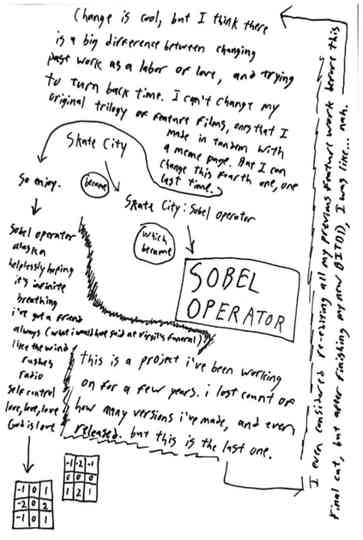 Change is cool, but I think there
is a big difference between changing
past work as a labor of love, and trying
to turn back time. I can't change my
original trilogy of feature films, ones that I
made in tandem with
a meme page. But I can
change this fourth one, one
last time.
Skate City
became
Skate City: Sobel operator
which
became
SOBEL
OPERATOR
So enjoy.
Sobel operator
alaskan
helplessly hoping
it's infinite
breathing
i've got a friend
always (what i would have said at virgil's funeral)
like the wind
rushes
radio
self control
love, love, love
God is love
-1 0 1
-2 0 2
-1 0 1
-1 -2 -1
0 0 0
1 2 1
this is a project i've been working
on for a few years. i lost count of
how many versions i've made, and even
released. but this is the last one.
I even considered re-editing all my previous feature work before this
final cut, but after finishing my own
I was like... nah.